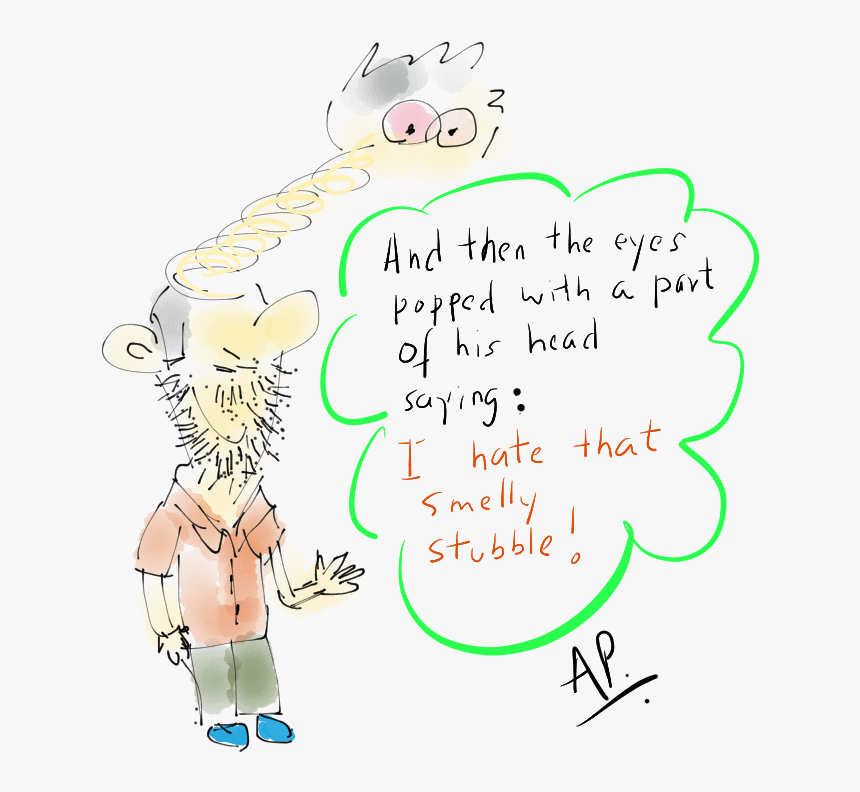 And then the eyes
popped with a part
of his head
saying:
I hate that
smelly
stubble!
AP.